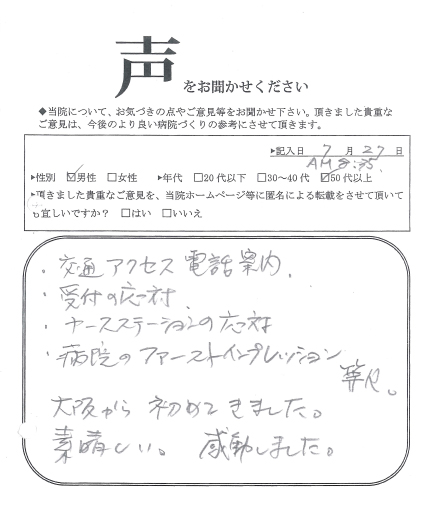 声 をお聞かせください
◆当院について、お気づきの点やご意見等をお聞かせ下さい。頂きました貴重な
ご意見は、今後のより良い病院づくりの参考にさせて頂きます。
▶記入日 7 月 27 日
AM 8:35
▶性別 ☑男性 □女性 ▶年代 □20代以下 □30~40代 ☑50代以上
▶頂きました貴重なご意見を、当院ホームページ等に匿名による転載をさせて頂いて
も宜しいですか? □はい □いいえ
・交通アクセス 電話案内、
・受付の応対、
・ナースステーションの応対
・病院のファーストインプレッション
等々。
大阪から 初めてきました。
素晴しい。 感動しました。